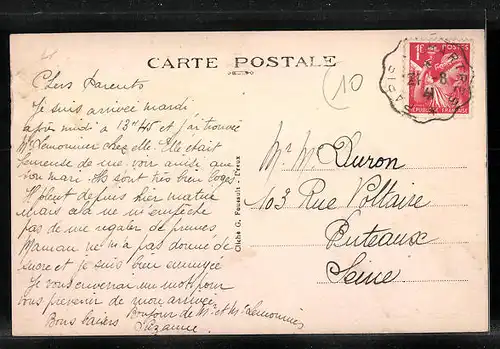 CARTE POSTALE
10
1F
POSTES
RÉPUBLIQUE FRANÇAISE
PARIS
21 -8
41
Chers Parents
Je suis arrivée mardi
après midi à 13h45 et j'ai trouvée
Me Lemonnier chez elle. Elle était
heureuse de me voir ainsi que
son mari. Ils sont très bien logés.
Il pleut depuis hier matin
mais cela ne m'empêche
pas de me régaler de prunes
Maman ne m'a pas donné de
sucre et je suis bien ennuyé
Je vous enverrai un mot pour
vous prévenir de mon arrivée.
Bonjour de Mr et Me Lemonnier
Bons baisers
Suzanne
Cliché G. Foucault - Evreux
Mr Me Duron
103 Rue Voltaire
Puteaux
Seine